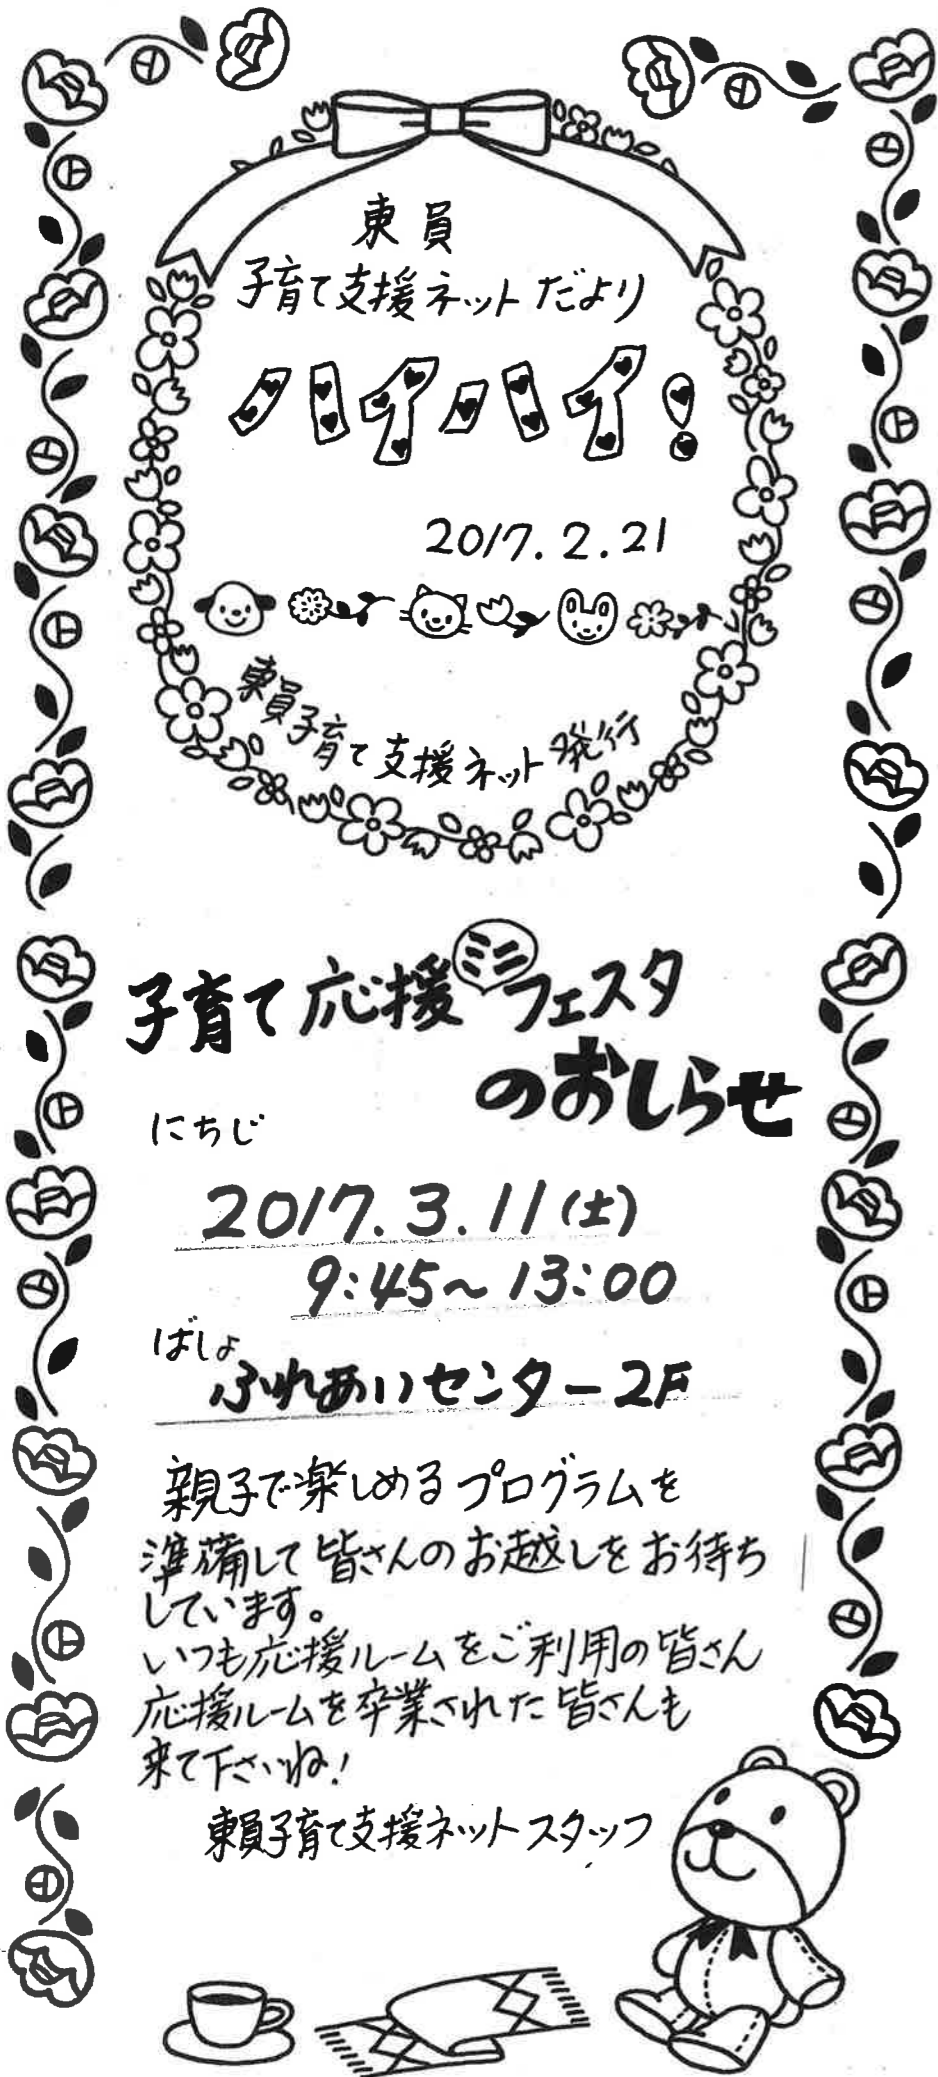 東員
子育て支援ネットだより
ハイハイ!
2017.2.21
東員子育て支援ネット発行
子育て応援ミニフェスタ
のおしらせ
にちじ
2017.3.11(土)
9:45~13:00
ばしょ
ふれあいセンター2F
親子で楽しめるプログラムを
準備して皆さんのお越しをお待ち
しています。
いつも応援ルームをご利用の皆さん
応援ルームを卒業された皆さんも
来て下さいね!
東員子育て支援ネットスタッフ